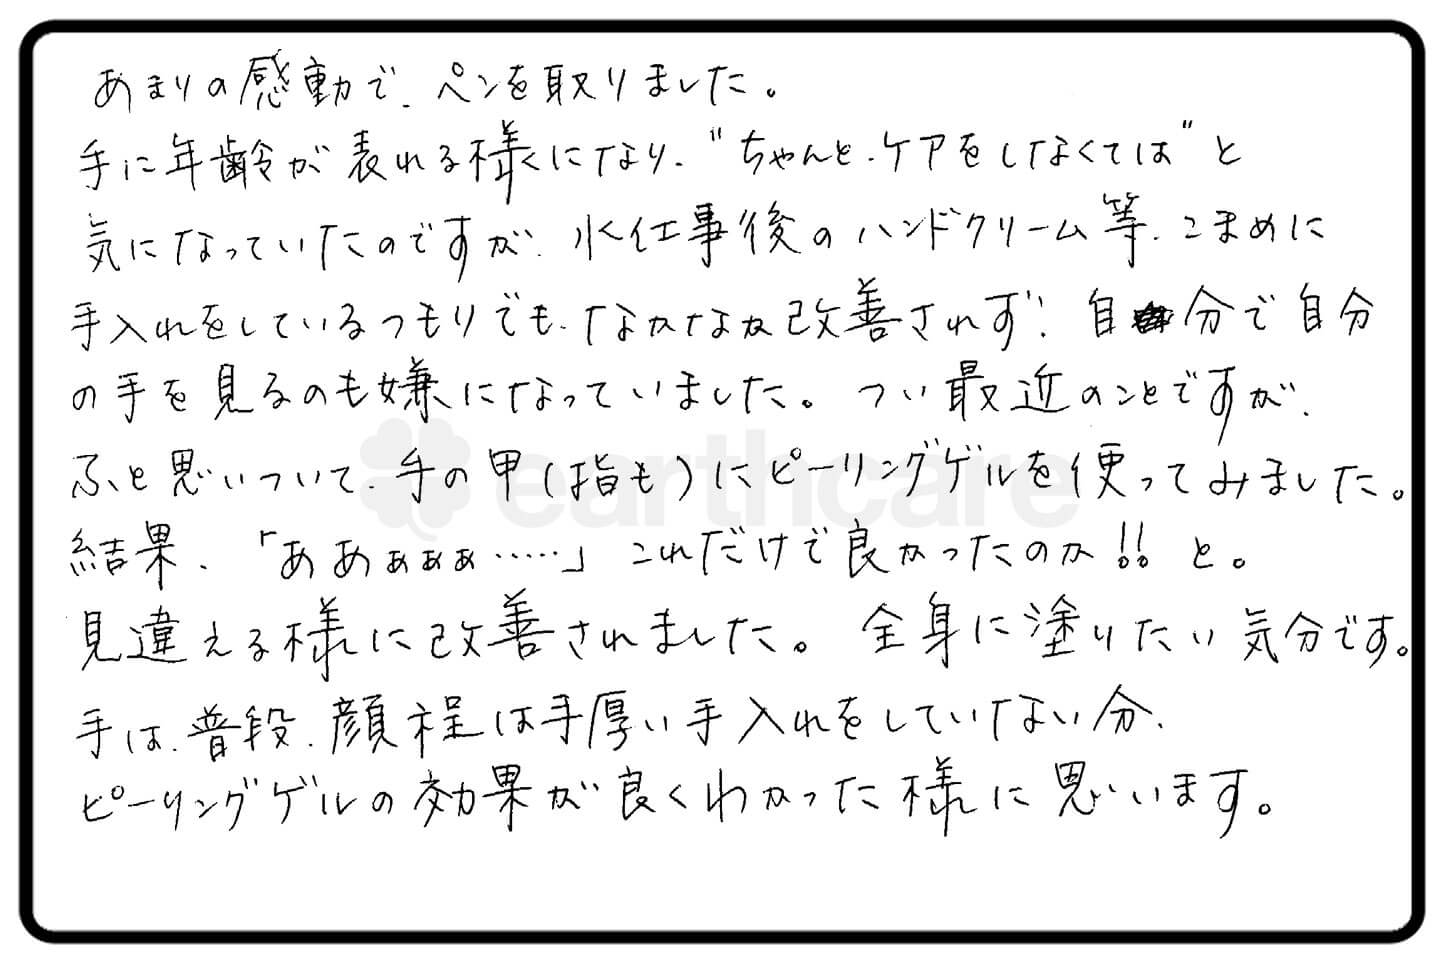 あまりの感動で、ペンを取りました。
手に年齢が表れる様になり、"ちゃんと、ケアをしなくては"と
気になっていたのですが、水仕事後のハンドクリーム等、こまめに
手入れをしているつもりでも、なかなか改善されず、自分で自分
の手を見るのも嫌になっていました。つい最近のことですが、
ふと思いついて、手の甲(指も)にピーリングゲルを使ってみました。
結果、「ああぁぁぁ……」これだけで良かったのか!!と。
見違える様に改善されました。全身に塗りたい気分です。
手は、普段、顔程は手厚い手入れをしていない分、
ピーリングゲルの効果が良くわかった様に思います。
earthcare